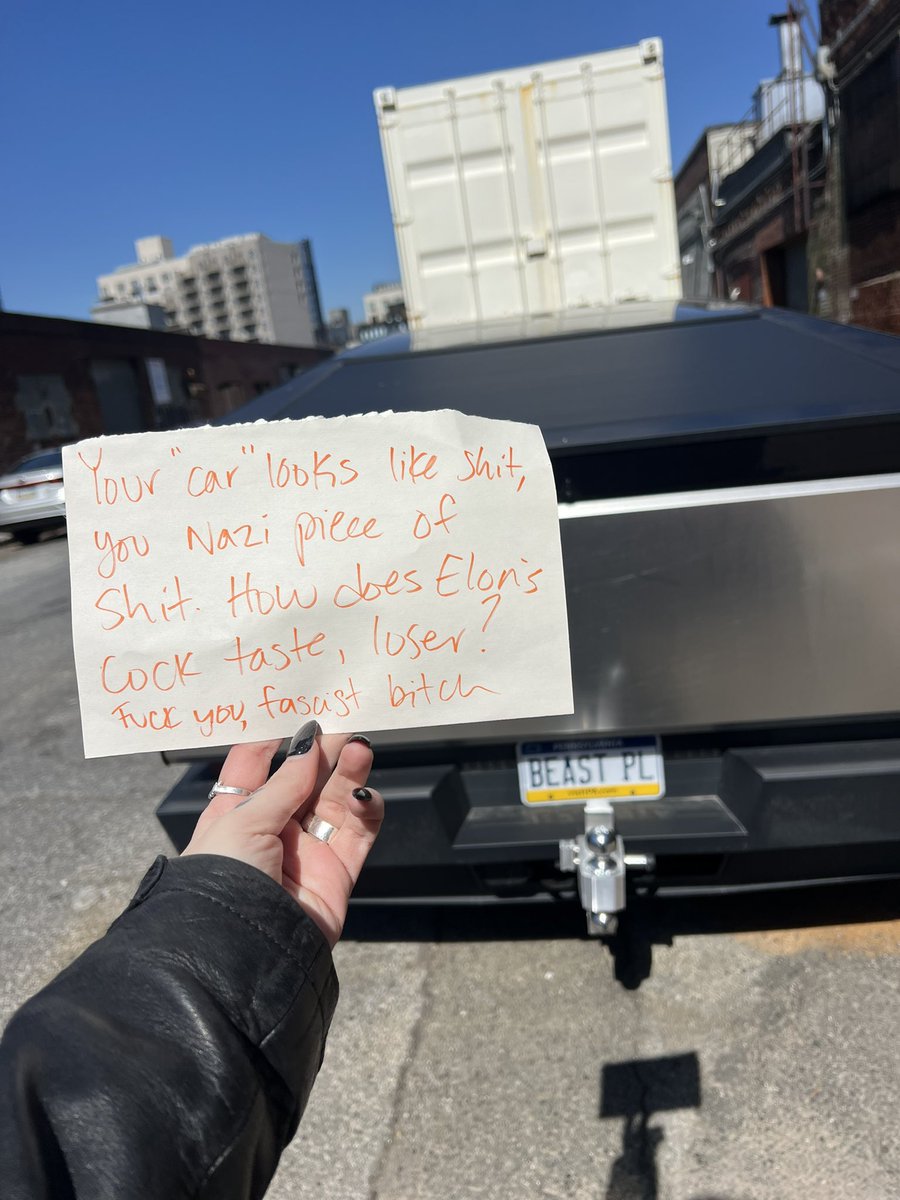 Your "car" looks like shit,
you Nazi piece of
shit. How does Elon's
cock taste, loser?
Fuck you, fascist bitch
PENNSYLVANIA
BEAST PL